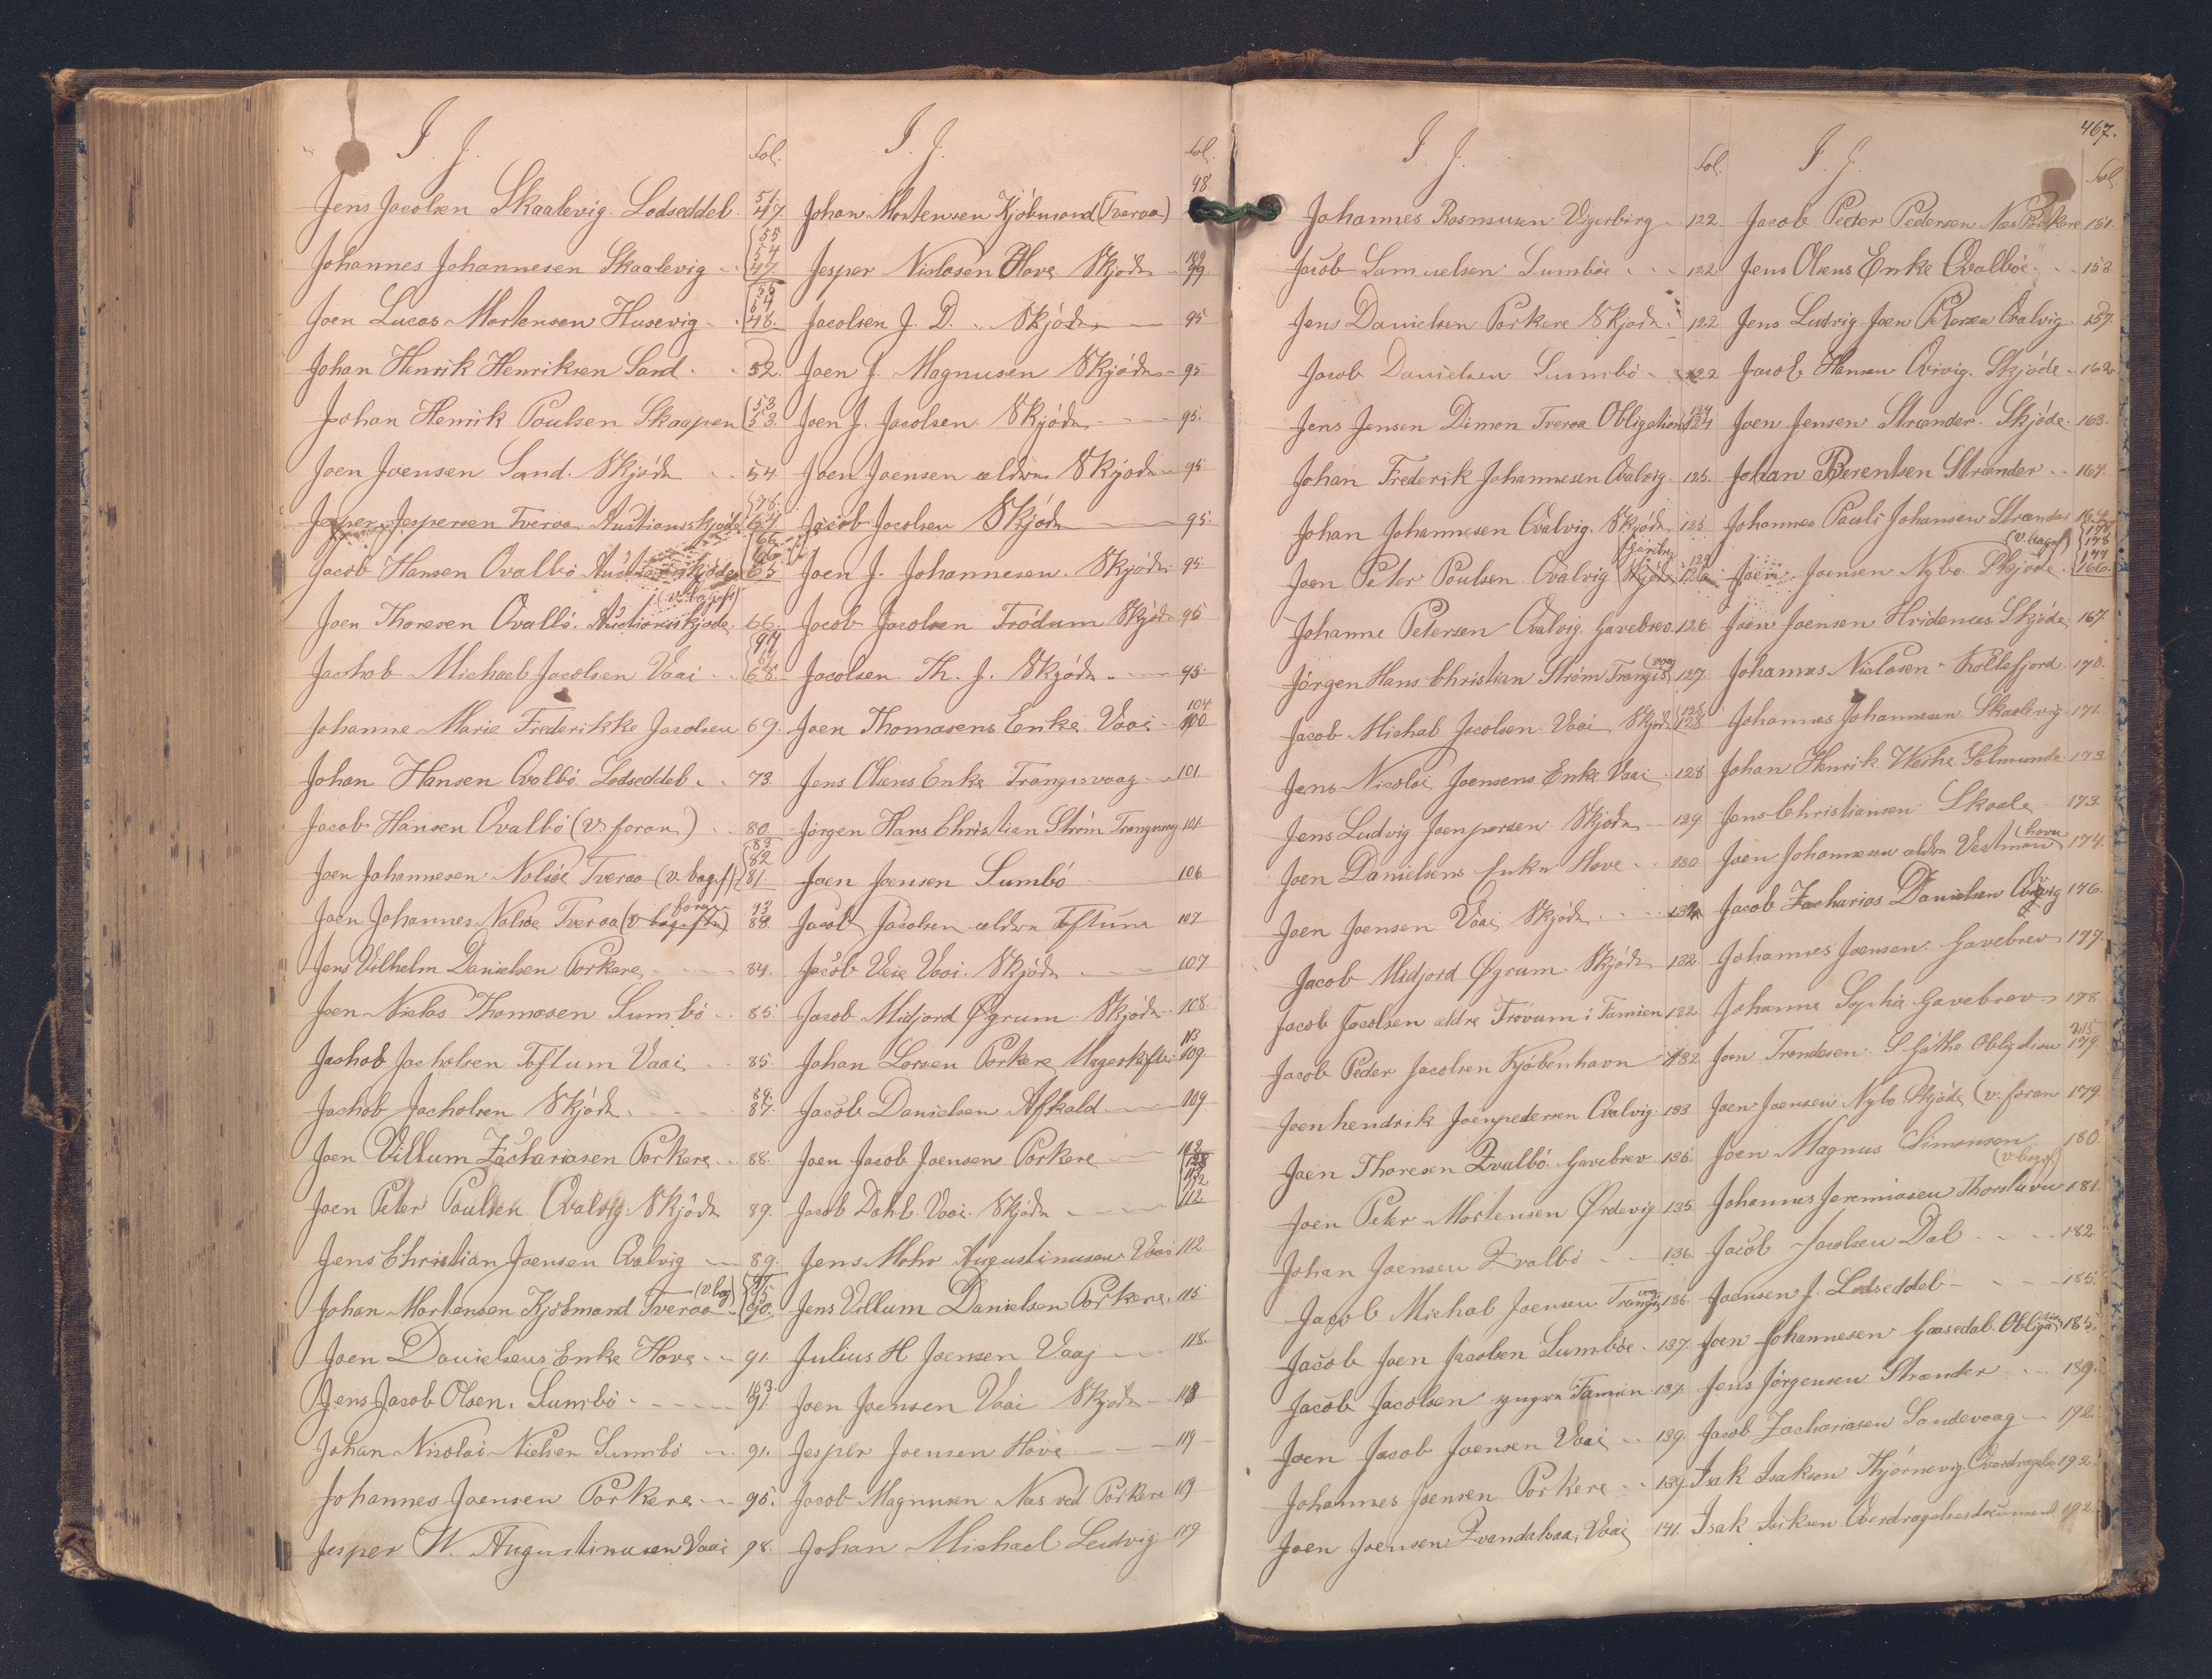 I. J.
Fol.
Jens Jacobsen Skaalevig. Lodseddel. 51 47.
Johannes Johannesen Skaalevig 55 54 47.
Joen Lucas Mortensen Husevig 48.
Johan Henrik Henriksen Sand 52.
Johan Henrik Poulsen Skaapen 53 53.
Joen Joensen Sand. Skjöde 54.
Jesper Jespersen Tveraa. Auctionsskjöde 78. 64.
Jacob Hansen Qvalbö Auctionsskjöde 66 65
(v. bageft)
Joen Thoresen Qvalbö. Auctionsskjöde. 66.
Jachob Michael Jacobsen Vaai 68.
Johanne Marie Frederikke Jacobsen 69.
Johan Hansen Qvalbö. Lodseddel 73.
Jacob Hansen Qvalbö (v. foran) 80.
Joen Johannesen Nolsöe Tveraa (v. bagef) 83 82 81.
Joen Johannes Nolsöe Tveraa (v. foran) 93 88.
Jens Vilhelm Danielsen Porkere 84.
Joen Niclas Thomasen Sumbö 85.
Jachob Jachobsen Toftum Vaai 85.
Jachob Jachobsen Skjöde 87.
Joen Villum Zachariasen Porkere 88.
Joen Peter Poulsen Qvalvig. Skjöde 89.
Jens Christian Joensen Qvalvig 89.
Johan Mortensen Kjöbmand Tveraa (v. bag) 95. 90.
Joen Danielsens Enke Hove 91.
Jens Jacob Olsen. Sumbö 163. 91.
Johan Nicolai Nielsen Sumbö 91.
Johannes Joensen Porkere 95.
Jesper W. Augustinusen Vaai 98.
I. J.
Fol.
Johan Mortensen Kjöbmand (Tveraa) 98.
Jesper Niclasen Hove Skjöde 99
Jacobsen J. D. Skjöde 95
Joen J. Magnusen Skjöde 95
Joen J. Jacobsen. Skjöde 95.
Joen Joensen ældre Skjöde 95
Jacob Jacobsen Skjöde 95.
Joen J. Johannesen. Skjöde 95.
Jacob Jacobsen Trödum Skjöde 95
Jacobsen Th. J. Skjöde 95.
Joen Thomasens Enke Vaai 104. 100.
Jens Olsens Enke Trangisvaag 101
Jörgen Hans Christian Ström Trangisvaag 101
Joen Joensen Sumbö 106
Jacob Jacobsen ældre Toftum 107
Jacob Veie Vaai. Skjöde 107
Jacob Midjord Øgrum. Skjöde 108.
Johan Larsen Porkere Mageskifte 113 109
Jacob Danielsen Afkald 109
Joen Jacob Joensen Porkere 112
Jacob Dahl. Vaai. Skjöde 112
Jens Mohr Augustinusen Vaai 112
Jens Villum Danielsen Porkere. 115
Julius H Joensen Vaaj 118.
Joen Joensen Vaai Skjöde 118
Jesper Joensen Hove 119
Jacob Magnusen Næs ved Porkere 119
Johan Michael Ludvig 119
I. J.
Fol.
Johannes Rasmusen Vigerbirg 122
Jacob Samuelsen Sumböe 122
Jens Danielsen Porkere Skjöde 122
Jacob Danielsen Sumbö 122
Jens Jensen Dimon Tveraa Obligation 124 124
Johan Frederik Johannesen Qvalvig. 125.
Johan Johannesen Qvalvig. Skjöde 125
Joen Peter Poulsen Qvalvig (Gavebr. Skjöde 139 126
Johanne Petersen Qvalvig. Gavebrev 126.
Jörgen Hans Christian Ström Trangisvaag 127
Jacob Michal Jacobsen Vaai Skjöde 128 128
Jens Nicolai Joensens Enke Vaai 128
Jens Ludvig Joenpersen Skjöde 129
Joen Danielsens Enke Hove 130
Joen Joensen Vaai Skjöde
Jacob Midjord Øgrum. Skjöde 132.
Jacob Jacobsen ældre Trövum i Famien 132
Jacob Peder Jacobsen Kjöbenhavn 132
Joenhendrik Joenpedersen Qvalvig. 133
Joen Thoresen Qvalbö. Gavebrev 135
Joen Peter Mortensen Ørdevig 135.
Johan Joensen Qvalbö 136.
Jacob Michal Joensen Trangisvaag 136.
Jacob Joen Jacobsen Sumböe 137.
Jacob Jacobsen yngre Famien 137.
Joen Jacob Joensen Vaai 139.
Johannes Joensen Porkere 139.
Joen Joensen Qvandalsaa, Vaai 141.
467.
I. J.
Fol.
Jacob Peder Pedersen Næs Porkere 151.
Jens Olsens Enke Qvalböe 153.
Jens Ludvig Joen Petersen Qvalvig 157.
Jacob Hansen Qvivig. Skjöde 162.
Joen Jensen Strænder. Skjöde. 163.
Johan Berentsen Strænder 164.
Johannes Pauli Johansen Strænder 164
(v. bagef)
Joen Joensen Nybo Skjöde 178 177 166.
Joen Joensen Hvidenæs Skjöde 167.
Johannes Niclasen Kollefjord 170.
Johannes Johannesen Skaalevig 171.
Johan Henrik Weihe Solmunde 173.
Jens Christiansen Skaale 173.
Joen Johannesen ældre Vestmanhavn 174.
Jacob Zacharias Danielsen Qvivig 176.
Johannes Joensen. Gavebrev 177.
Johanne Sophie Gavebrev 178.
Joen Trondesen. S. Göthe Obligation 215 179.
Joen Joensen Nybo Skjöde (v. foran 179.
Joen Magnus Simonsen (v. bagef) 180.
Johannes Jeremiasen Thorshavn 181.
Jacob Jacobsen Dal 182.
Joensen J. Lodseddel 185.
Joen Johannesen Gaasedal. Obligation 185.
Jens Jörgensen Strænder 189.
Jacob Zachariasen Sandevaag 192.
Isak Isaksen Thjörnevig. Overdragelse 192.
Isak Isaksen Overdragelsesdocument 192.